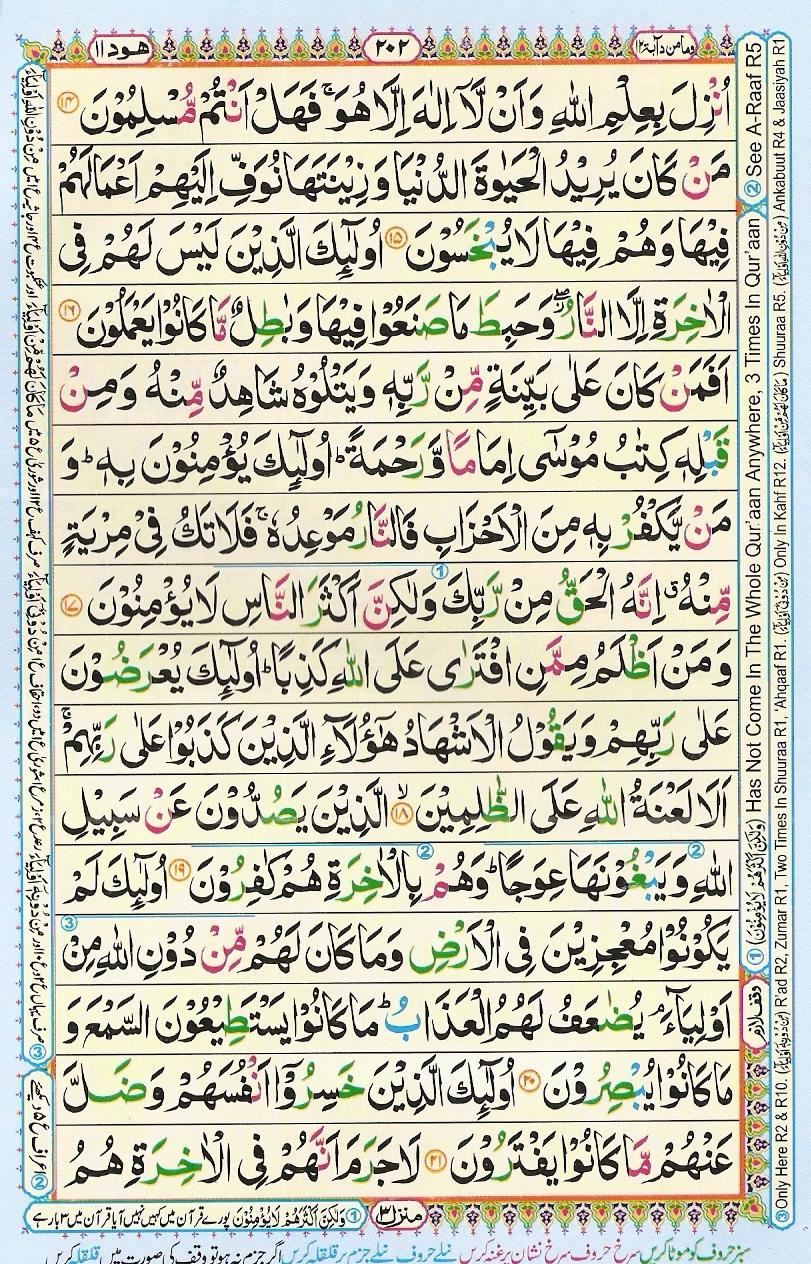 وما من دآبة ۱۲
۲۰۲
هود ۱۱
اُنْزِلَ بِعِلْمِ اللّٰهِ وَاَنْ لَّاۤ اِلٰهَ اِلَّا هُوَ ۚ فَهَلْ اَنْتُمْ مُّسْلِمُوْنَ ۱۴
مَنْ كَانَ يُرِيْدُ الْحَيٰوةَ الدُّنْيَا وَ زِيْنَتَهَا نُوَفِّ اِلَيْهِمْ اَعْمَالَهُمْ
فِيْهَا وَهُمْ فِيْهَا لَا يُبْخَسُوْنَ ۱۵ اُولٰٓئِكَ الَّذِيْنَ لَيْسَ لَهُمْ فِى
الْاٰخِرَةِ اِلَّا النَّارُ ۖ وَحَبِطَ مَا صَنَعُوْا فِيْهَا وَبٰطِلٌ مَّا كَانُوْا يَعْمَلُوْنَ ۱۶
اَفَمَنْ كَانَ عَلٰى بَيِّنَةٍ مِّنْ رَّبِّهٖ وَيَتْلُوْهُ شَاهِدٌ مِّنْهُ وَمِنْ
قَبْلِهٖ كِتٰبُ مُوْسٰٓى اِمَامًا وَّرَحْمَةً ؕ اُولٰٓئِكَ يُؤْمِنُوْنَ بِهٖ ؕ وَ
مَنْ يَّكْفُرْ بِهٖ مِنَ الْاَحْزَابِ فَالنَّارُ مَوْعِدُهٗ ۚ فَلَا تَكُ فِىْ مِرْيَةٍ
مِّنْهُ ۗ اِنَّهُ الْحَقُّ مِنْ رَّبِّكَ وَلٰكِنَّ اَكْثَرَ النَّاسِ لَا يُؤْمِنُوْنَ ۱۷
وَمَنْ اَظْلَمُ مِمَّنِ افْتَرٰى عَلَى اللّٰهِ كَذِبًا ؕ اُولٰٓئِكَ يُعْرَضُوْنَ
عَلٰى رَبِّهِمْ وَيَقُوْلُ الْاَشْهَادُ هٰٓؤُلَآءِ الَّذِيْنَ كَذَبُوْا عَلٰى رَبِّهِمْ ۚ
اَلَا لَعْنَةُ اللّٰهِ عَلَى الظّٰلِمِيْنَ ۱۸ ۙ الَّذِيْنَ يَصُدُّوْنَ عَنْ سَبِيْلِ
اللّٰهِ وَيَبْغُوْنَهَا عِوَجًا ؕ وَهُمْ بِالْاٰخِرَةِ هُمْ كٰفِرُوْنَ ۱۹ اُولٰٓئِكَ لَمْ
يَكُوْنُوْا مُعْجِزِيْنَ فِى الْاَرْضِ وَمَا كَانَ لَهُمْ مِّنْ دُوْنِ اللّٰهِ مِنْ
اَوْلِيَآءَ ۘ يُضٰعَفُ لَهُمُ الْعَذَابُ ؕ مَا كَانُوْا يَسْتَطِيْعُوْنَ السَّمْعَ وَ
مَا كَانُوْا يُبْصِرُوْنَ ۲۰ اُولٰٓئِكَ الَّذِيْنَ خَسِرُوْۤا اَنْفُسَهُمْ وَضَلَّ
عَنْهُمْ مَّا كَانُوْا يَفْتَرُوْنَ ۲۱ لَا جَرَمَ اَنَّهُمْ فِى الْاٰخِرَةِ هُمُ
① وَلٰكِنَّ اَكْثَرَهُمْ لَا يُؤْمِنُوْنَ پورے قرآن میں کہیں نہیں آیا قرآن میں ۳ بار ہے
منزل ۳
سبز حروف کو موٹا کریں سرخ حروف سرخ نشان پر غنہ کریں نیلے حروف نیلے جزم پر قلقلہ کریں اگر جزم نہ ہو تو وقف کی صورت میں قلقلہ کریں
① (وَلٰكِنَّ اَكْثَرَهُمْ لَا يُؤْمِنُوْنَ) Has Not Come In The Whole Qur'aan Anywhere, 3 Times In Qur'aan
② See A-Raaf R5
③ Only Here R2 & R10. (مِنْ دُوْنِهٖٓ اَوْلِيَآءَ) R'ad R2, Zumar R1, Two Times In Shuuraa R1, 'Ahqaaf R1. (مِنْ دُوْنِىْٓ اَوْلِيَآءَ) Only In Kahf R12. (مَا كَانَ لَهُمْ مِّنْ اَوْلِيَآءَ) Shuuraa R5. (مِنْ دُوْنِ اللّٰهِ اَوْلِيَآءَ) Ankabuut R4 & Jaasiyah R1
وقف لازم
② اعراف ع ۵ دیکھئے